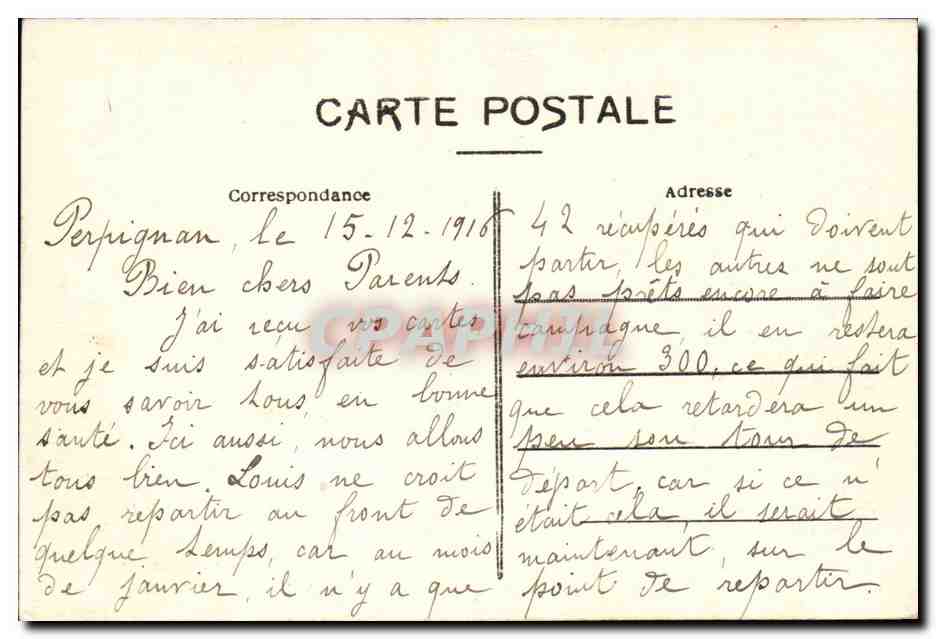 CARTE POSTALE
Correspondance
Perpignan, le 15-12-1916
Bien chers Parents.
J'ai reçu vos cartes
et je suis satisfaite de
vous savoir tous en bonne
santé. Ici aussi, nous allons
tous bien. Louis ne croit
pas repartir au front de
quelque temps, car au mois
de janvier, il n'y a que
Adresse
42 récupérés qui doivent
partir, les autres ne sont
pas prêts encore à faire
campagne, il en restera
environ 300, ce qui fait
que cela retardera un
peu son tour de
départ, car si ce n'
était cela, il serait
maintenant, sur le
point de repartir.
CPAPHIL